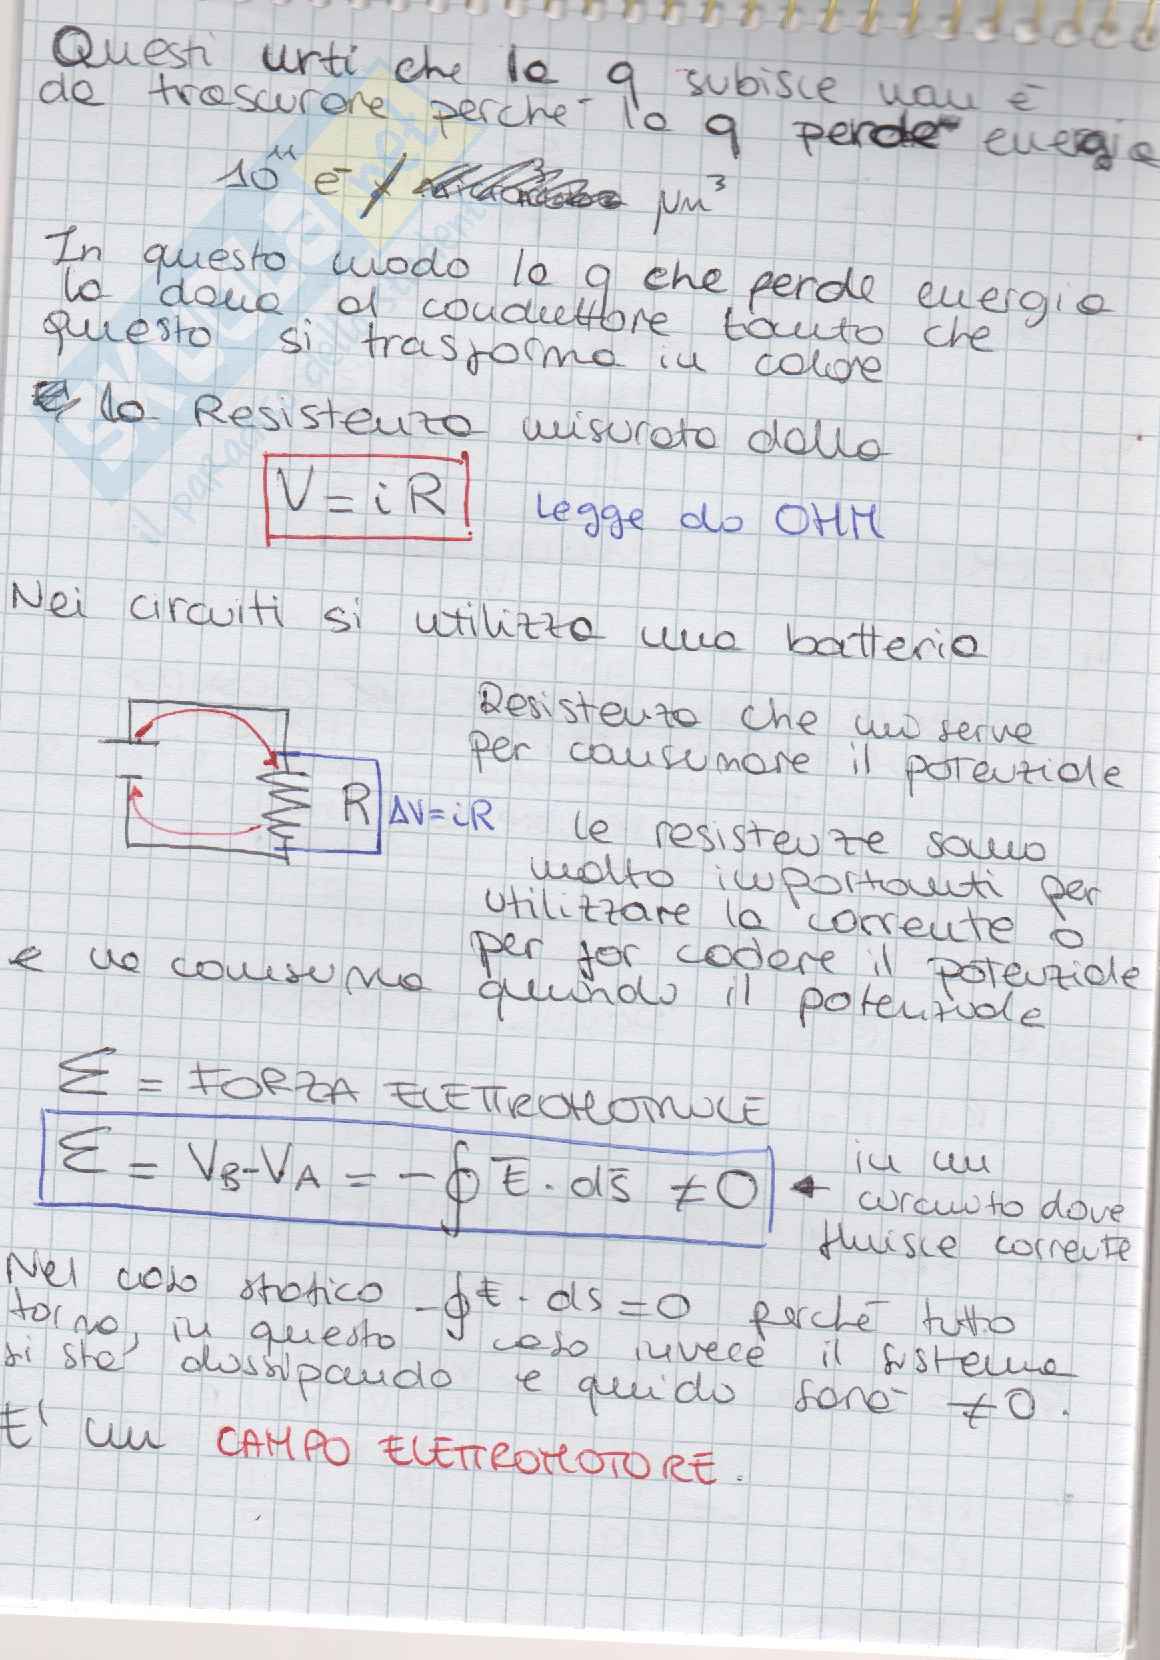 Questi urti che la q subisce non è
da trascurare perchè la q perde energia
10¹¹ e⁻/ μm³
In questo modo la q che perde energia
la dona al conduttore tanto che
questo si trasforma in calore
la Resistenza misurata dalla
V = iR legge do OHM
Nei circuiti si utilizza una batteria
Resistenza che mi serve
per consumare il potenziale
R ΔV=iR
le resistenze sono
molto importanti per
utilizzare la corrente o
per far cadere il potenziale
e ne consuma quando il potenziale
Ɛ = FORZA ELETTROMOTRICE
Ɛ = VB-VA = -∮ Ē · ds̄ ≠0
in un
circuito dove
fluisce corrente
Nel caso statico -∮E · ds = 0 perchè tutto
torna, in questo caso invece il sistema
si sta' dissipando e quindi sarà ≠0.
E' un CAMPO ELETTROMOTORE.
SKUOLA.net
il paradiso dello studente